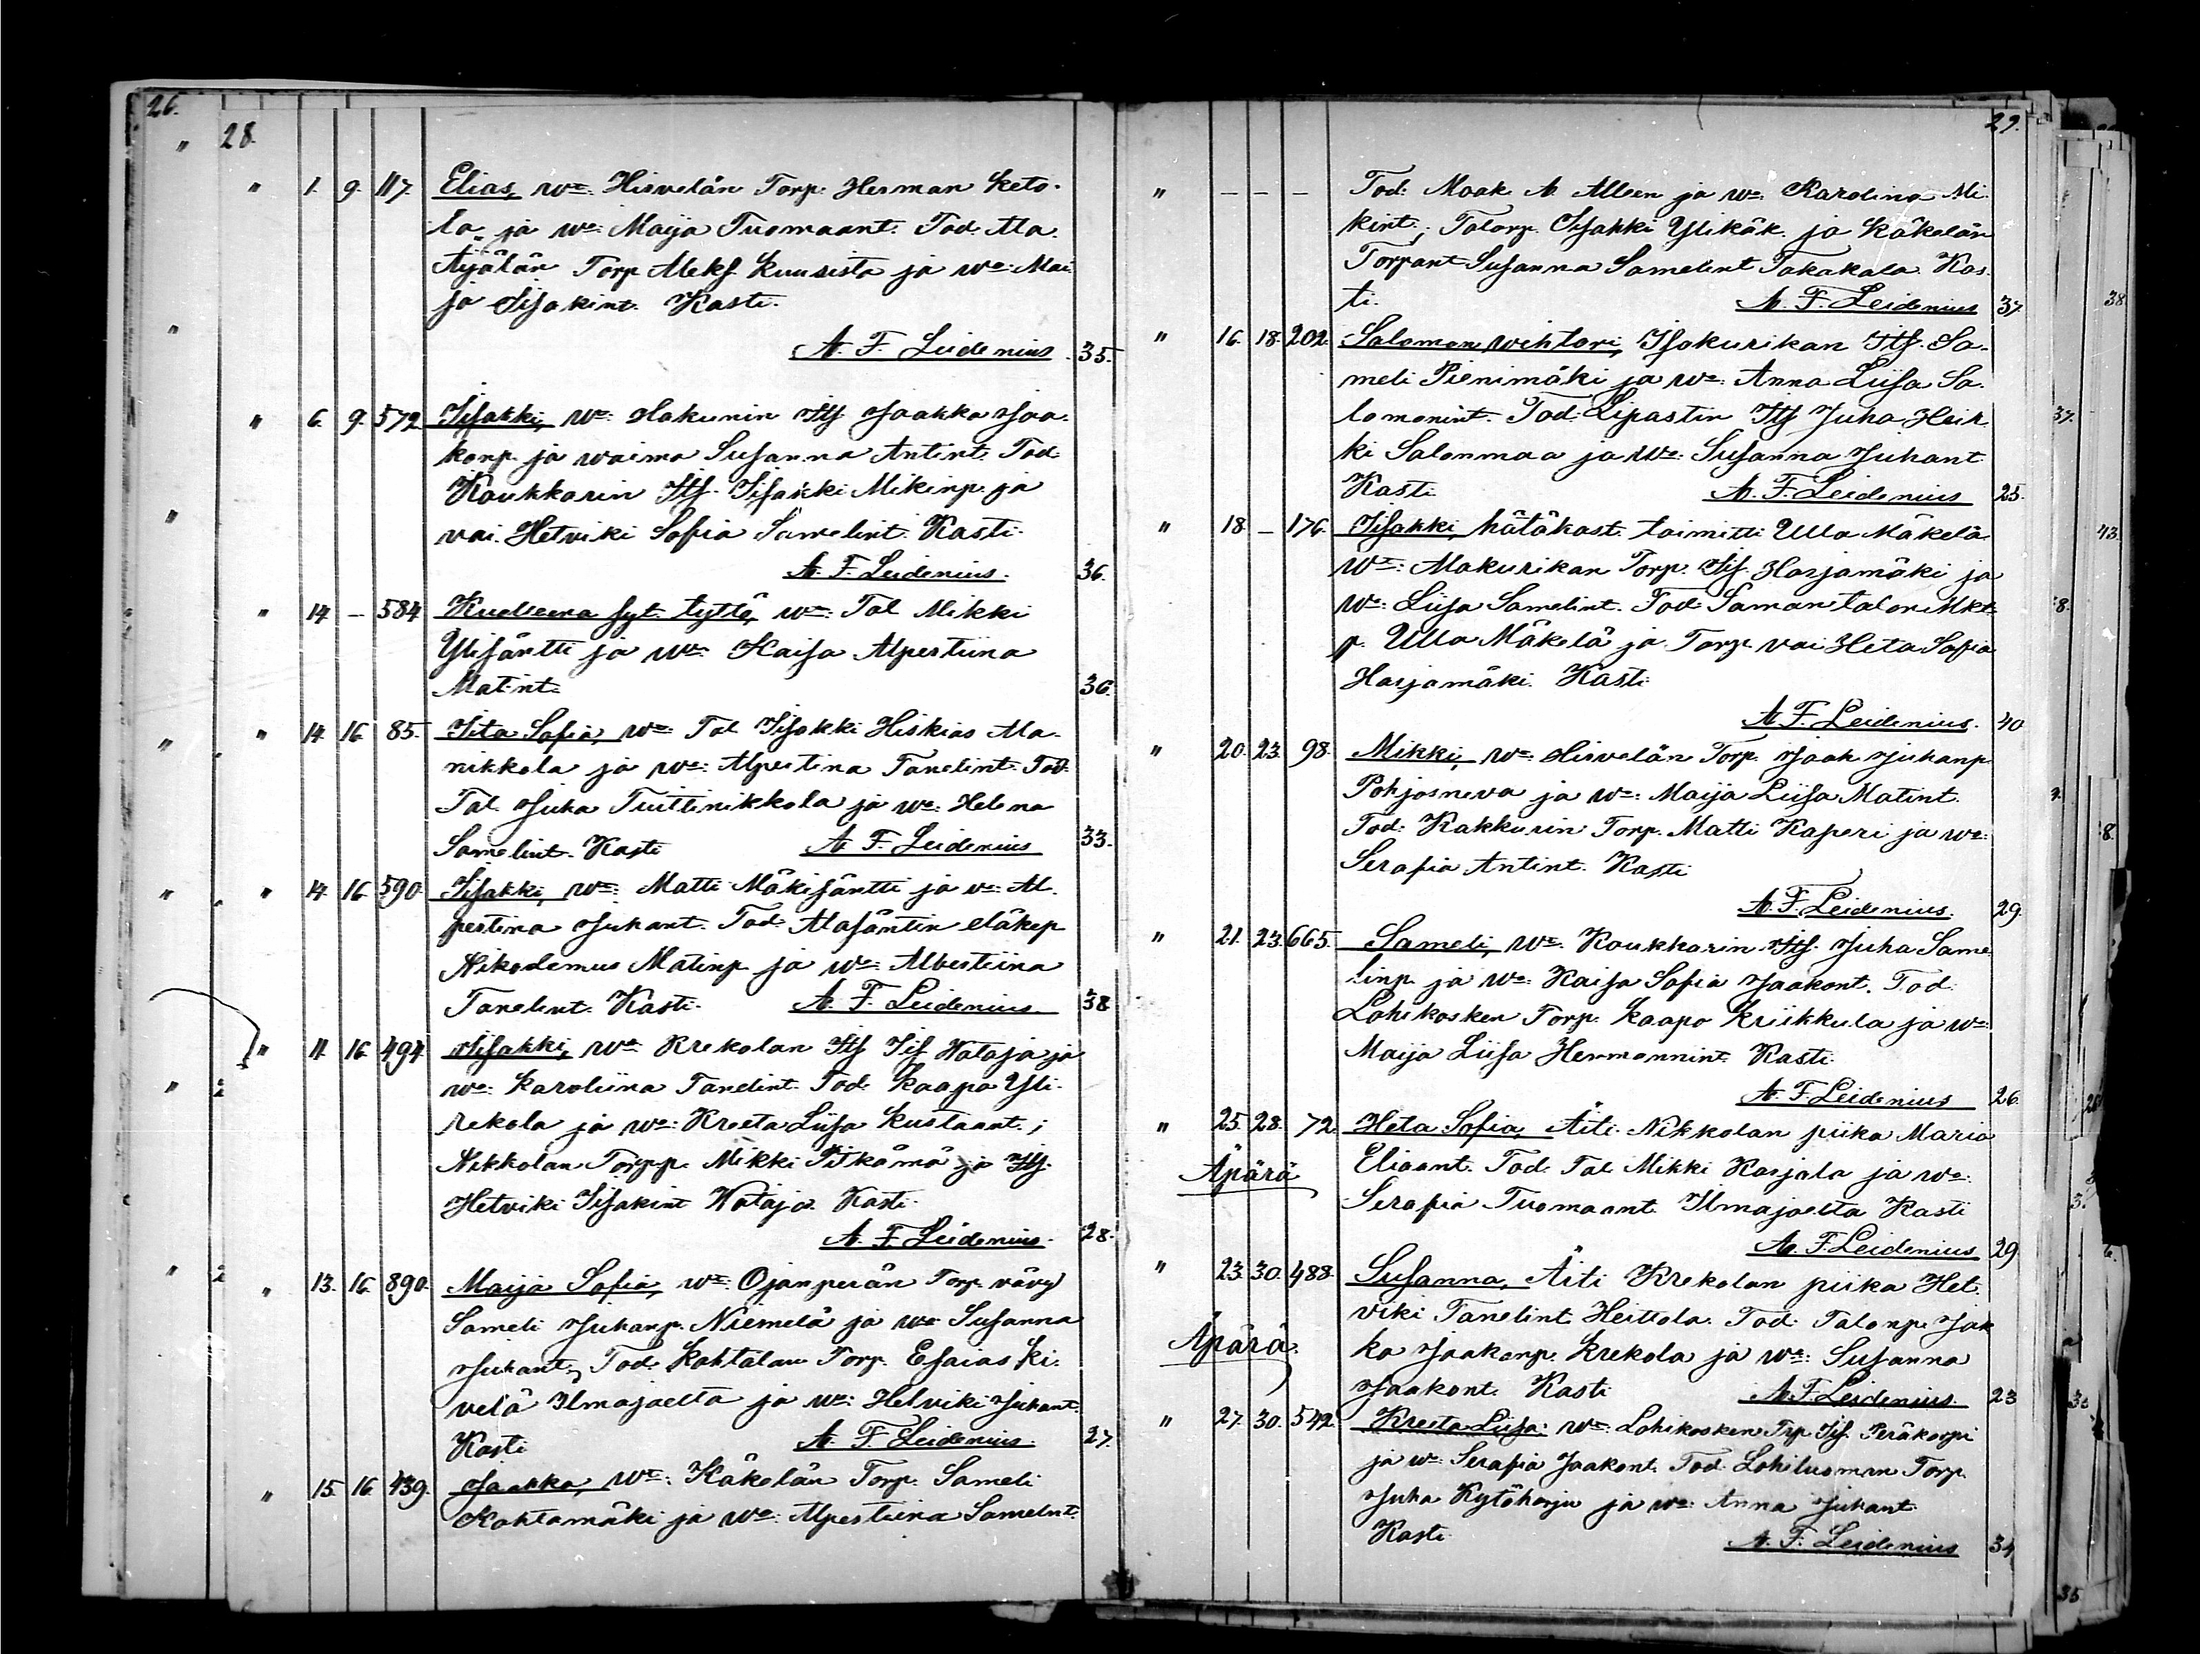 26.
" 28.
" 1. 9. 117. Elias, wa: Hirvelän Torp: Herman Keto-
la, ja wa: Maija Tuomaant. Tod: Ala
Äijälän Torp Aleks. Kuusista ja wa: Mai
ja Iisakint. Kasti.
A. F. Leidenius 35.
" 6. 9. 572 Iisakki, wa: Hakunin Its. Jaakko Jaa-
konp. ja waimo Susanna Antint. Tod:
Koukkarin Its. Iisakki Mikinp. ja
vai. Hetviki Sofia Samelint. Kasti.
A. F. Leidenius. 36.
" 14. – 584 Kuolleena syt. tyttö, wa: Tal Mikki
Ylisäntti ja wa: Kaisa Alpestiina
Matint. 36.
" 14. 16. 85. Iita Sofia, wa: Tal Iisakki Hiskias Ala-
nikkola ja wa: Alpestina Tanelint. Tod:
Tal. Juha Tuittinikkola ja wa: Helena
Samelint. Kasti A. F. Leidenius 33.
" 14. 16. 590. Iisakki, wa: Matti Mäkisäntti ja wa: Al-
pestina Juhant. Tod: Alasäntin eläkep
Nikodemus Matinp. ja wa: Albestiina
Tanelint. Kasti. A. F. Leidenius. 38
" 11. 16. 494 Iisakki, wa: Krekolan Its Iis Kataja ja
wa: Karoliina Tanelint. Tod: Kaapo Yli-
rekola ja wa: Kreeta Liisa Kustaant.;
Nikkolan Torpp. Mikki Pitkämä ja Its.
Hetviki Iisakint Kataja. Kasti.
A. F. Leidenius. 28.
" 13. 16. 890. Maija Sofia, wa: Ojanperän Torp. vävy
Sameli Juhanp. Niemelä ja wa: Susanna
Juhant., Tod: Kohtalan Torp. Esaias Ki-
velä Ilmajoelta ja wa: Helviki Juhant.
Kasti A. F. Leidenius. 27.
" 15. 16. 439. Jaakko, wa: Käkelän Torp. Sameli
Kohtamäki ja wa: Alpestiina Samelnt.
29.
" – – – Tod: Maak. A. Alleen ja wa: Karolina Mi-
kint.; Talonp. Iisakki Ylikäk. ja Käkelän
Torpant Susanna Samelint Takakala. Kas-
ti. A. F. Leidenius 37.
" 16. 18. 202. Salomon Wihtori, Isokurikan Its. Sa-
meli Pienimäki ja wa: Anna Liisa Sa-
lomonint. Tod: Lipastin Its Juha Heik
ki Salonmaa ja wa: Susanna Juhant
Kasti. A. F. Leidenius 25.
" 18. – 176. Iisakki, hätäkast. toimitti Ulla Mäkelä
wa: Alakurikan Torp. Iis. Harjamäki ja
wa: Liisa Samelint. Tod: Saman talon Mkt-
p. Ulla Mäkelä ja Torp. vai Heta Sofia
Harjamäki. Kasti
A. F. Leidenius. 40
" 20. 23. 98. Mikki, wa: Hirvelän Torp. Jaak Juhanp
Pohjosneva ja wa: Maija Liisa Matint.
Tod: Kakkurin Torp. Matti Kaperi ja wa:
Serafia Antint. Kasti
A. F. Leidenius. 29.
" 21. 23. 665. Sameli, wa: Koukkarin Its. Juha Same
linp. ja wa: Kaisa Sofia Jaakont. Tod:
Lohikosken Torp. Kaapo Kriikkula ja wa:
Maija Liisa Hermannint. Kasti.
A. F. Leidenius 26.
" 25. 28. 72. Heta Sofia, Äiti Nikkolan piika Maria
Äpärä Eliaant. Tod: Tal Mikki Karjala ja wa:
Serafia Tuomaant. Ilmajoelta Kasti
A. F. Leidenius 29
" 23. 30. 488. Susanna, Äiti Krekolan piika Het-
viki Tanelint. Heittola. Tod: Talonp. Jak
Äpärä. ko Jaakonp. Krekola ja wa: Susanna
Jaakont. Kasti A. F. Leidenius. 23
" 27. 30. 542. Kreeta Liisa: wa: Lohikosken Trp Iis. Peräkorpi
ja wa: Serafia Jaakont. Tod: Lohiluoman Torp.
Juha Kytöharju ja wa: Anna Juhant
Kasti A. F. Leidenius 34